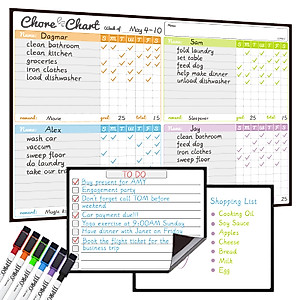 Chore & Chart
Week of May 4-10
Name: Dagmar
S M T W T F S
clean bathroom
clean kitchen
groceries
iron clothes
unload dishwasher
reward: Movie
goal 25
total 25
Name: Sam
S M T W T F S
fold laundry
set table
feed dog
help make dinner
unload dishwasher
reward: Sleepover
goal 25
total 25
Name: Alex
S M T W T F S
wash car
vaccum
sweep floor
do laundry
take our tra
reward: Magic
Name: Joy
S M T W T F S
clean bathroom
iron clothes
sweep floor
goal 15
total 15
TO DO
Buy present for AMY
Engagement party
Don't forget call TOM before
weekend
Car payment due!!!
Yoga exercise at 9:00AM Sunday
Have dinner with Janet on Friday
Book the flight ticket for the
business trip
Shopping List
Cooking Oil
Soy Sauce
Apples
Cheese
Bread
Milk
Egg